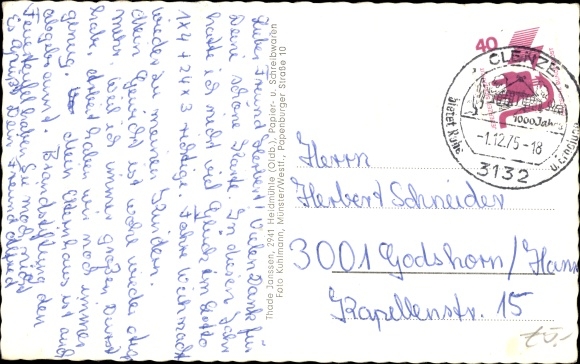 Lieber Freund Herbert! Vielen Dank für
Deine schöne Karte. In diesem Jahr
hatte ich nicht viel Glück im Lotto
1x4 + 24x3 richtige. Fahre Weihnacht
wieder zu meinen Kindern.
Mein Gewicht ist wohl wieder etwas
mehr, weil ich immer großen Durst
habe. Arbeit haben wir noch immer
genug. Mein Elternhaus ist auch
abgebrannt. Brandstiftung den
Feuerteufel haben Sie noch nicht
Es grüßt Dein Freund Alfred
Thade Janssen, 2941 Heidmühle (Oldb.), Papier- u. Schreibwaren
Foto Kuhlmann, Münster/Westf., Papenburger Straße 10
40
CLENZE
1000 Jahre
bietet Ruhe
-1.12.75-18
3132
Herrn
Herbert Schneider
3001 Godshorn/Hann
Kapellenstr. 15